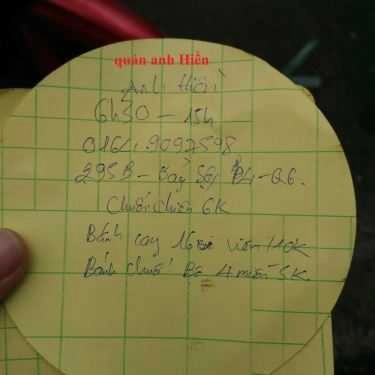 quán anh Hiền
Anh Hiền
6h30 - 15h
0164.9097598
295B - Bãi Sậy P4 - Q6.
Chuối chiên 6K
Bánh cay 16 viên 10K
Bánh chuối 4 miến 5K.